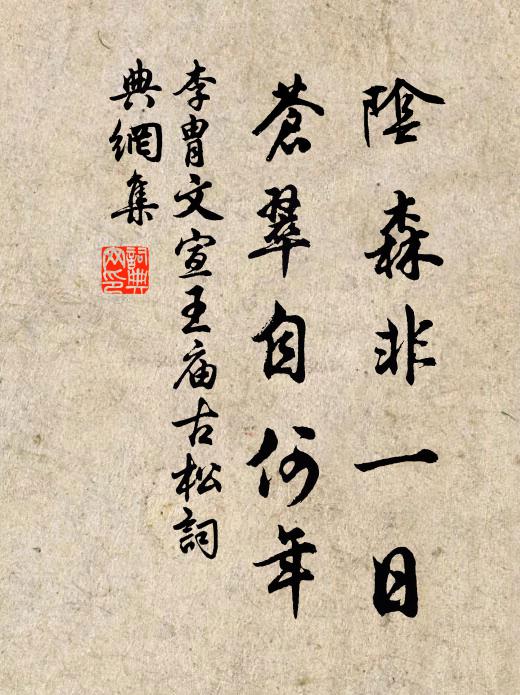 陰森非一日
蒼翠自何年
李胄文宣王庙古松詞
典網集
詞典